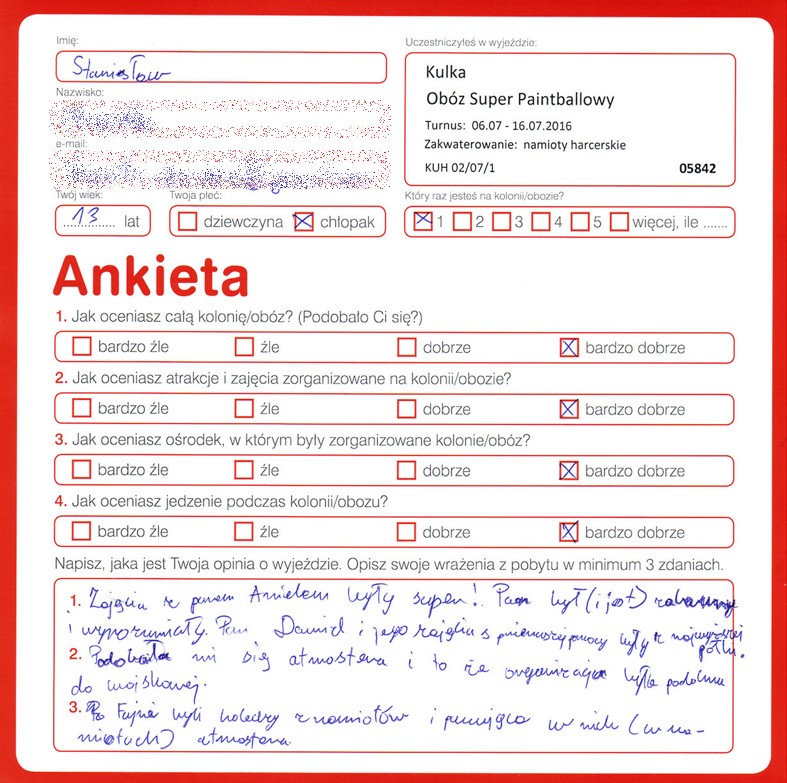 Imię:
Stanisław
Nazwisko:
e-mail:
Twój wiek:
13 lat
Twoja płeć:
dziewczyna chłopak
Uczestniczyłeś w wyjeździe:
Kulka
Obóz Super Paintballowy
Turnus: 06.07 - 16.07.2016
Zakwaterowanie: namioty harcerskie
KUH 02/07/1 05842
Który raz jesteś na kolonii/obozie?
1 2 3 4 5 więcej, ile .......
Ankieta
1. Jak oceniasz całą kolonię/obóz? (Podobało Ci się?)
bardzo źle źle dobrze bardzo dobrze
2. Jak oceniasz atrakcje i zajęcia zorganizowane na kolonii/obozie?
bardzo źle źle dobrze bardzo dobrze
3. Jak oceniasz ośrodek, w którym były zorganizowane kolonie/obóz?
bardzo źle źle dobrze bardzo dobrze
4. Jak oceniasz jedzenie podczas kolonii/obozu?
bardzo źle źle dobrze bardzo dobrze
Napisz, jaka jest Twoja opinia o wyjeździe. Opisz swoje wrażenia z pobytu w minimum 3 zdaniach.
1. Zajęcia z panem Anielem były super! Pan był (i jest) zabawny
i wyrozumiały. Pan Dawid i jego zajęcia z pierwszej pomocy były z najwyższej
półki.
2. Podobała mi się atmosfera i to że organizacja była podobna
do wojskowej.
3. Fajni byli koledzy z namiotów i panująca w nich (w na-
miotach) atmosfera